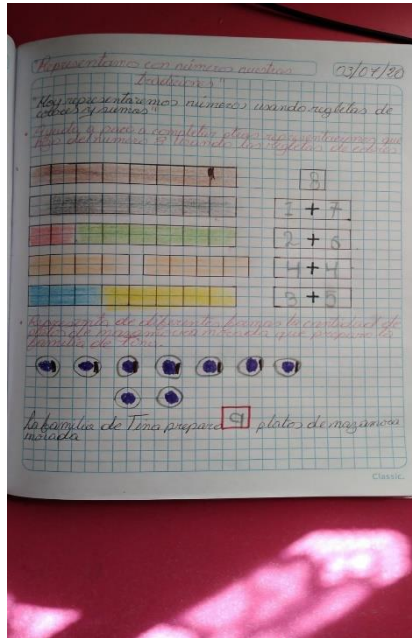 "Representamos con números nuestras
03/07/20
tradiciones"
"Hoy representaremos números usando regletas de
colores y sumas"
Ayuda a para a completar otras representaciones que
hizo del número 8 usando las regletas de colores
8
1 + 7
2 + 6
4 + 4
3 + 5
Representa de diferentes formas la cantidad de
platos de mazamorra morada que preparó la
familia de Tina.
La familia de Tina preparó 9 platos de mazamorra
morada
Classic.